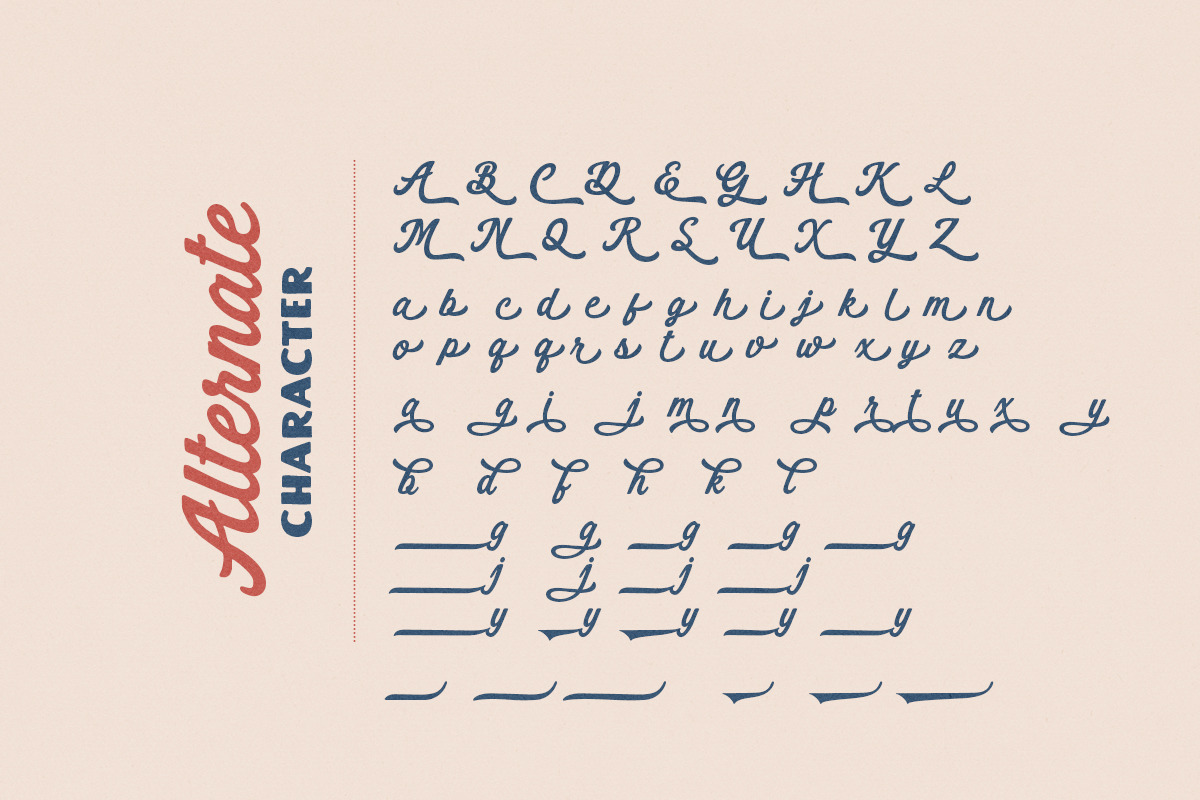 Alternate
CHARACTER
A B C D E G H K L
M N Q R S U X Y Z
a b c d e f g h i j k l m n
o p q q r s t u v w x y z
a g i j m n p r t u x y
b d f h k l
g g g g g
j j j j
y y y y y